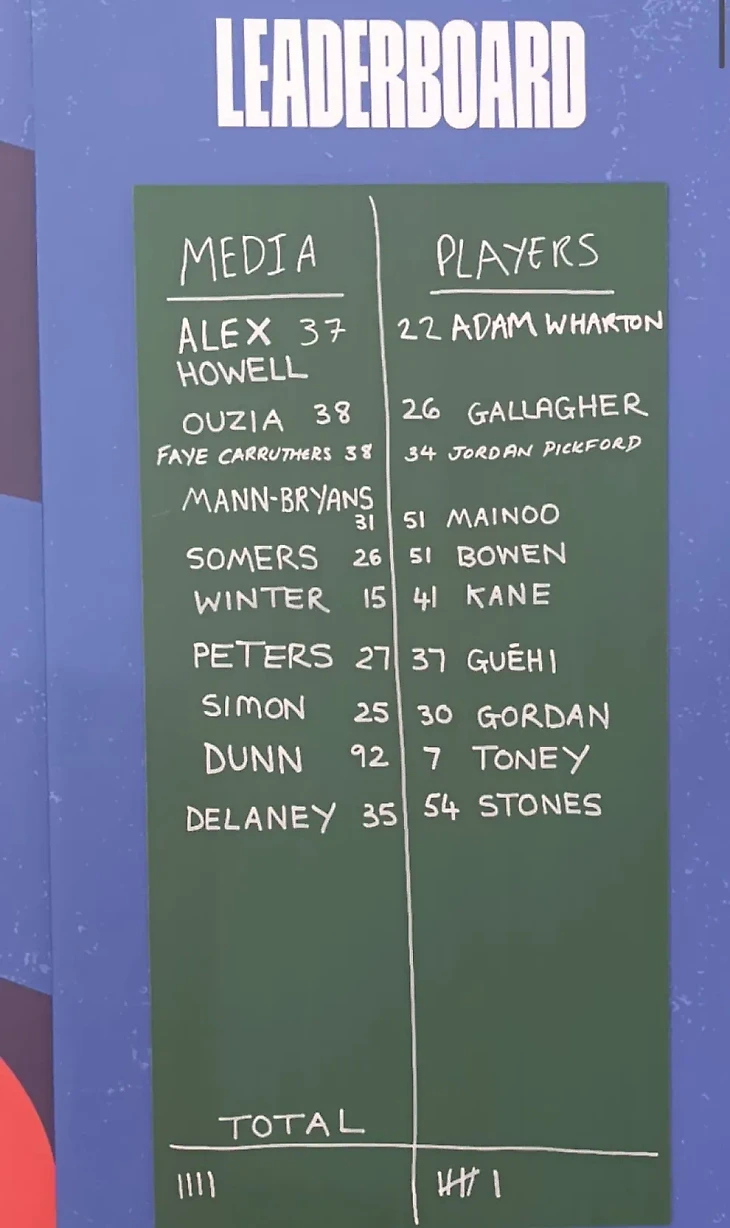 LEADERBOARD
MEDIA PLAYERS
ALEX 37 22 ADAM WHARTON
HOWELL
OUZIA 38 26 GALLAGHER
FAYE CARRUTHERS 38 34 JORDAN PICKFORD
MANN-BRYANS
31 51 MAINOO
SOMERS 26 51 BOWEN
WINTER 15 41 KANE
PETERS 27 37 GUĒHI
SIMON 25 30 GORDAN
DUNN 92 7 TONEY
DELANEY 35 54 STONES
TOTAL
|||| |||| |